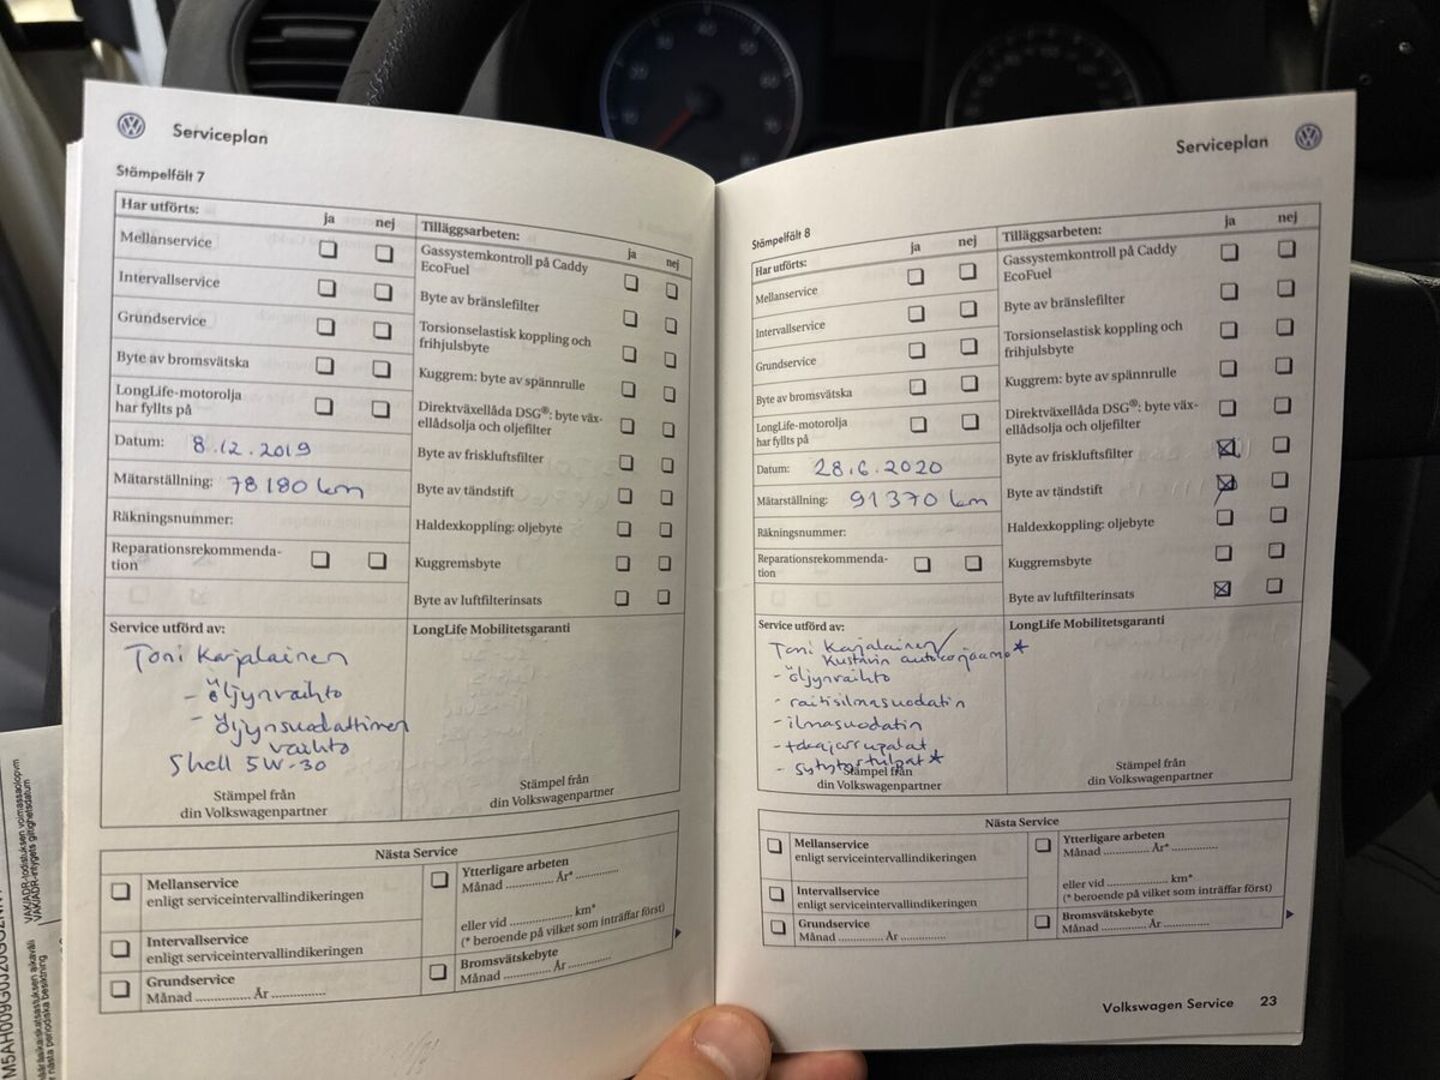 Serviceplan
Stämpelfält 7
Har utförts:
ja
nej
Mellanservice
Intervallservice
Grundservice
Byte av bromsvätska
LongLife-motorolja
har fyllts på
Datum: 8.12.2019
Mätarställning: 78180 km
Räkningsnummer:
Reparationsrekommenda-
tion
Tilläggsarbeten:
ja
nej
Gassystemkontroll på Caddy
EcoFuel
Byte av bränslefilter
Torsionselastisk koppling och
frihjulsbyte
Kuggrem: byte av spännrulle
Direktväxellåda DSG®: byte väx-
ellådsolja och oljefilter
Byte av friskluftsfilter
Byte av tändstift
Haldexkoppling: oljebyte
Kuggremsbyte
Byte av luftfilterinsats
Service utförd av:
Toni Karjalainen
- öljynvaihto
- öljynsuodattimen
vaihto
Shell 5W-30
Stämpel från
din Volkswagenpartner
LongLife Mobilitetsgaranti
Stämpel från
din Volkswagenpartner
Nästa Service
Mellanservice
enligt serviceintervallindikeringen
Intervallservice
enligt serviceintervallindikeringen
Grundservice
Månad ............... År ...............
Ytterligare arbeten
Månad ............... År* ...............
eller vid .................... km*
(* beroende på vilket som inträffar först)
Bromsvätskebyte
Månad ............... År ...............
Serviceplan
Stämpelfält 8
Har utförts:
ja
nej
Mellanservice
Intervallservice
Grundservice
Byte av bromsvätska
LongLife-motorolja
har fyllts på
Datum: 28.6.2020
Mätarställning: 91370 km
Räkningsnummer:
Reparationsrekommenda-
tion
Tilläggsarbeten:
ja
nej
Gassystemkontroll på Caddy
EcoFuel
Byte av bränslefilter
Torsionselastisk koppling och
frihjulsbyte
Kuggrem: byte av spännrulle
Direktväxellåda DSG®: byte väx-
ellådsolja och oljefilter
Byte av friskluftsfilter
Byte av tändstift
Haldexkoppling: oljebyte
Kuggremsbyte
Byte av luftfilterinsats
Service utförd av:
Toni Karjalainen/
Kustavin autokorjaamo*
- öljynvaihto
- raitisilmasuodatin
- ilmasuodatin
- takajarrupalat
- sytytystulpat*
Stämpel från
din Volkswagenpartner
LongLife Mobilitetsgaranti
Stämpel från
din Volkswagenpartner
Nästa Service
Mellanservice
enligt serviceintervallindikeringen
Intervallservice
enligt serviceintervallindikeringen
Grundservice
Månad ............... År ...............
Ytterligare arbeten
Månad ............... År* ...............
eller vid .................... km*
(* beroende på vilket som inträffar först)
Bromsvätskebyte
Månad ............... År ...............
Volkswagen Service 23